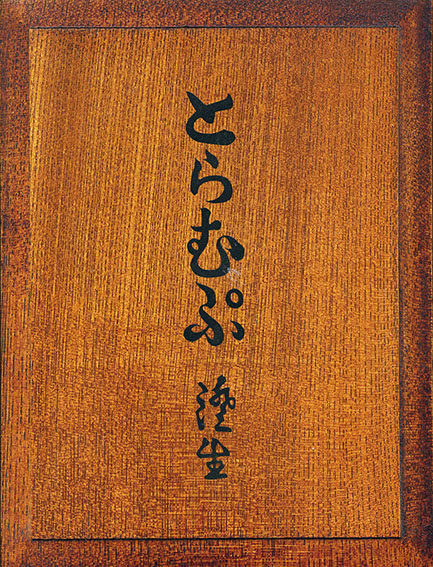 とらむぷ
澄生